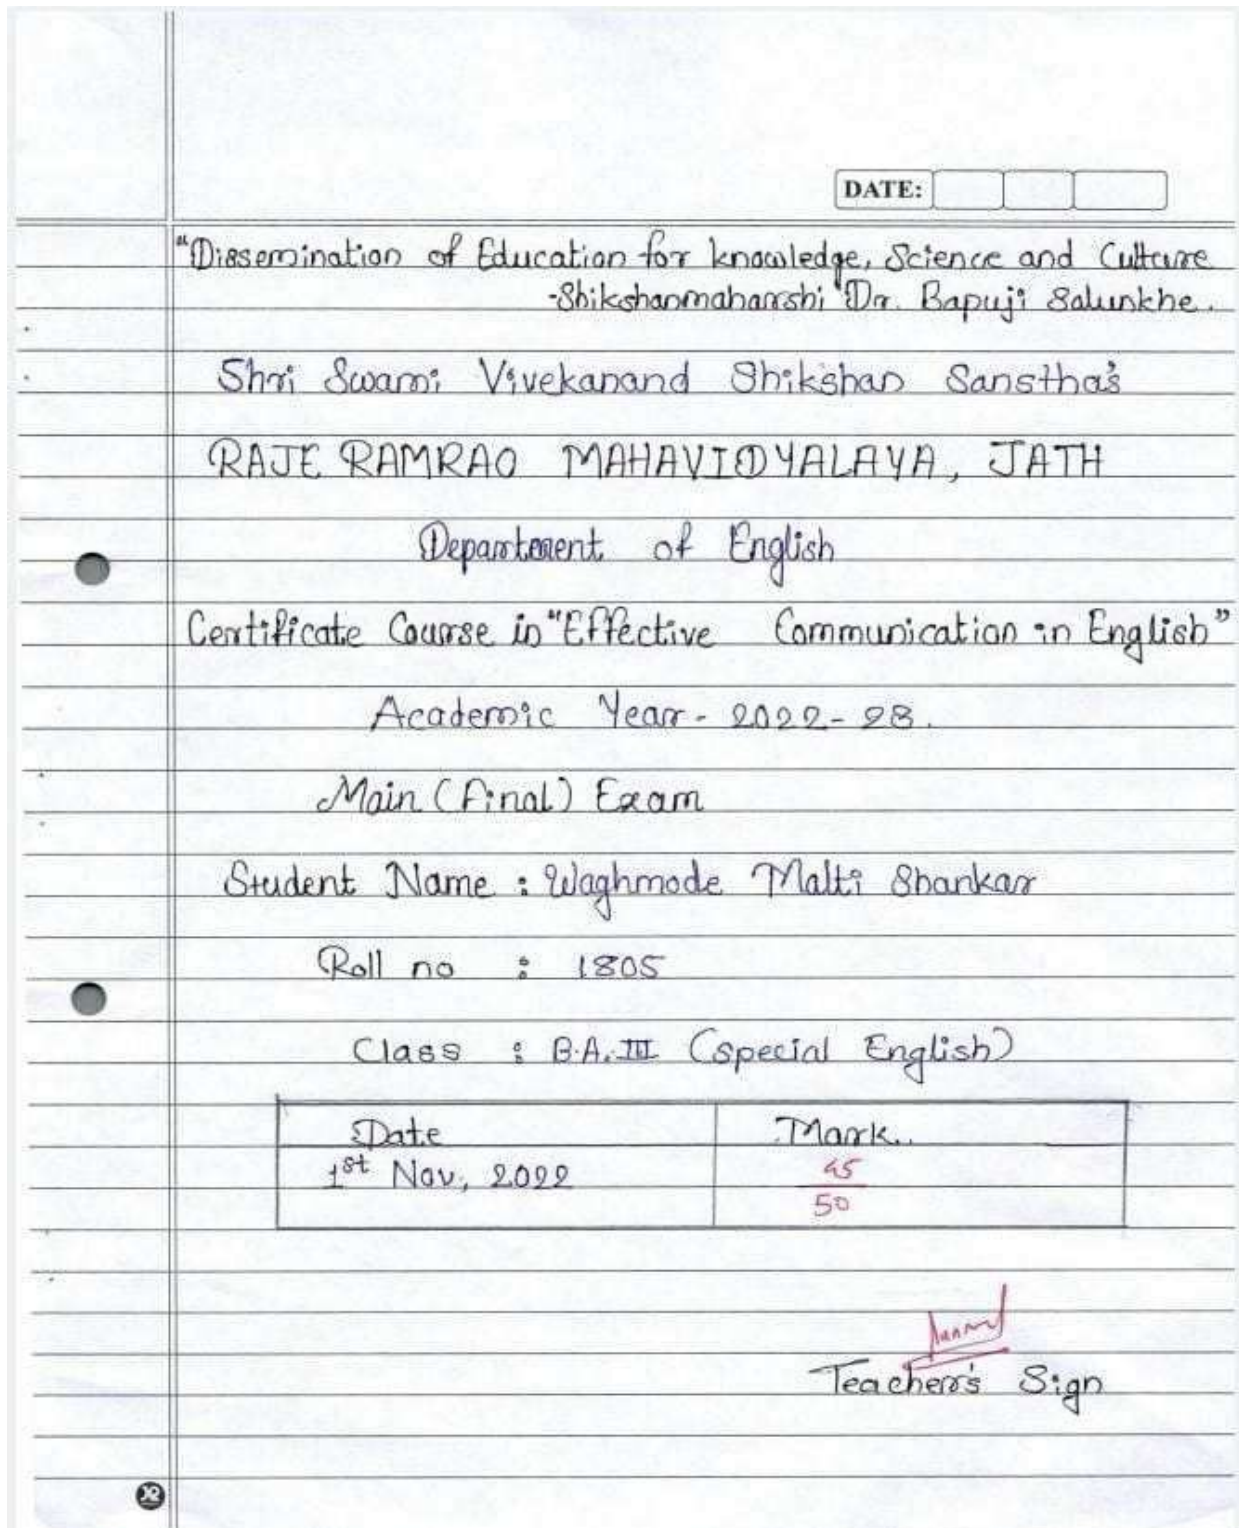 DATE:
"Dissemination of Education for knowledge, Science and Culture
-Shikshanmaharshi "Dr. Bapuji Salunkhe.
Shri Swami Vivekanand Shikshan Sanstha's
RAJE RAMRAO MAHAVIDYALAYA, JATH
Department of English
Certificate Course in "Effective Communication in English"
Academic Year - 2022-23.
Main (Final) Exam
Student Name : Waghmode Malti Shankar
Roll no : 1805
Class : B.A. III (special English)
Date Mark..
1st Nov, 2022 45
50
Teacher's Sign